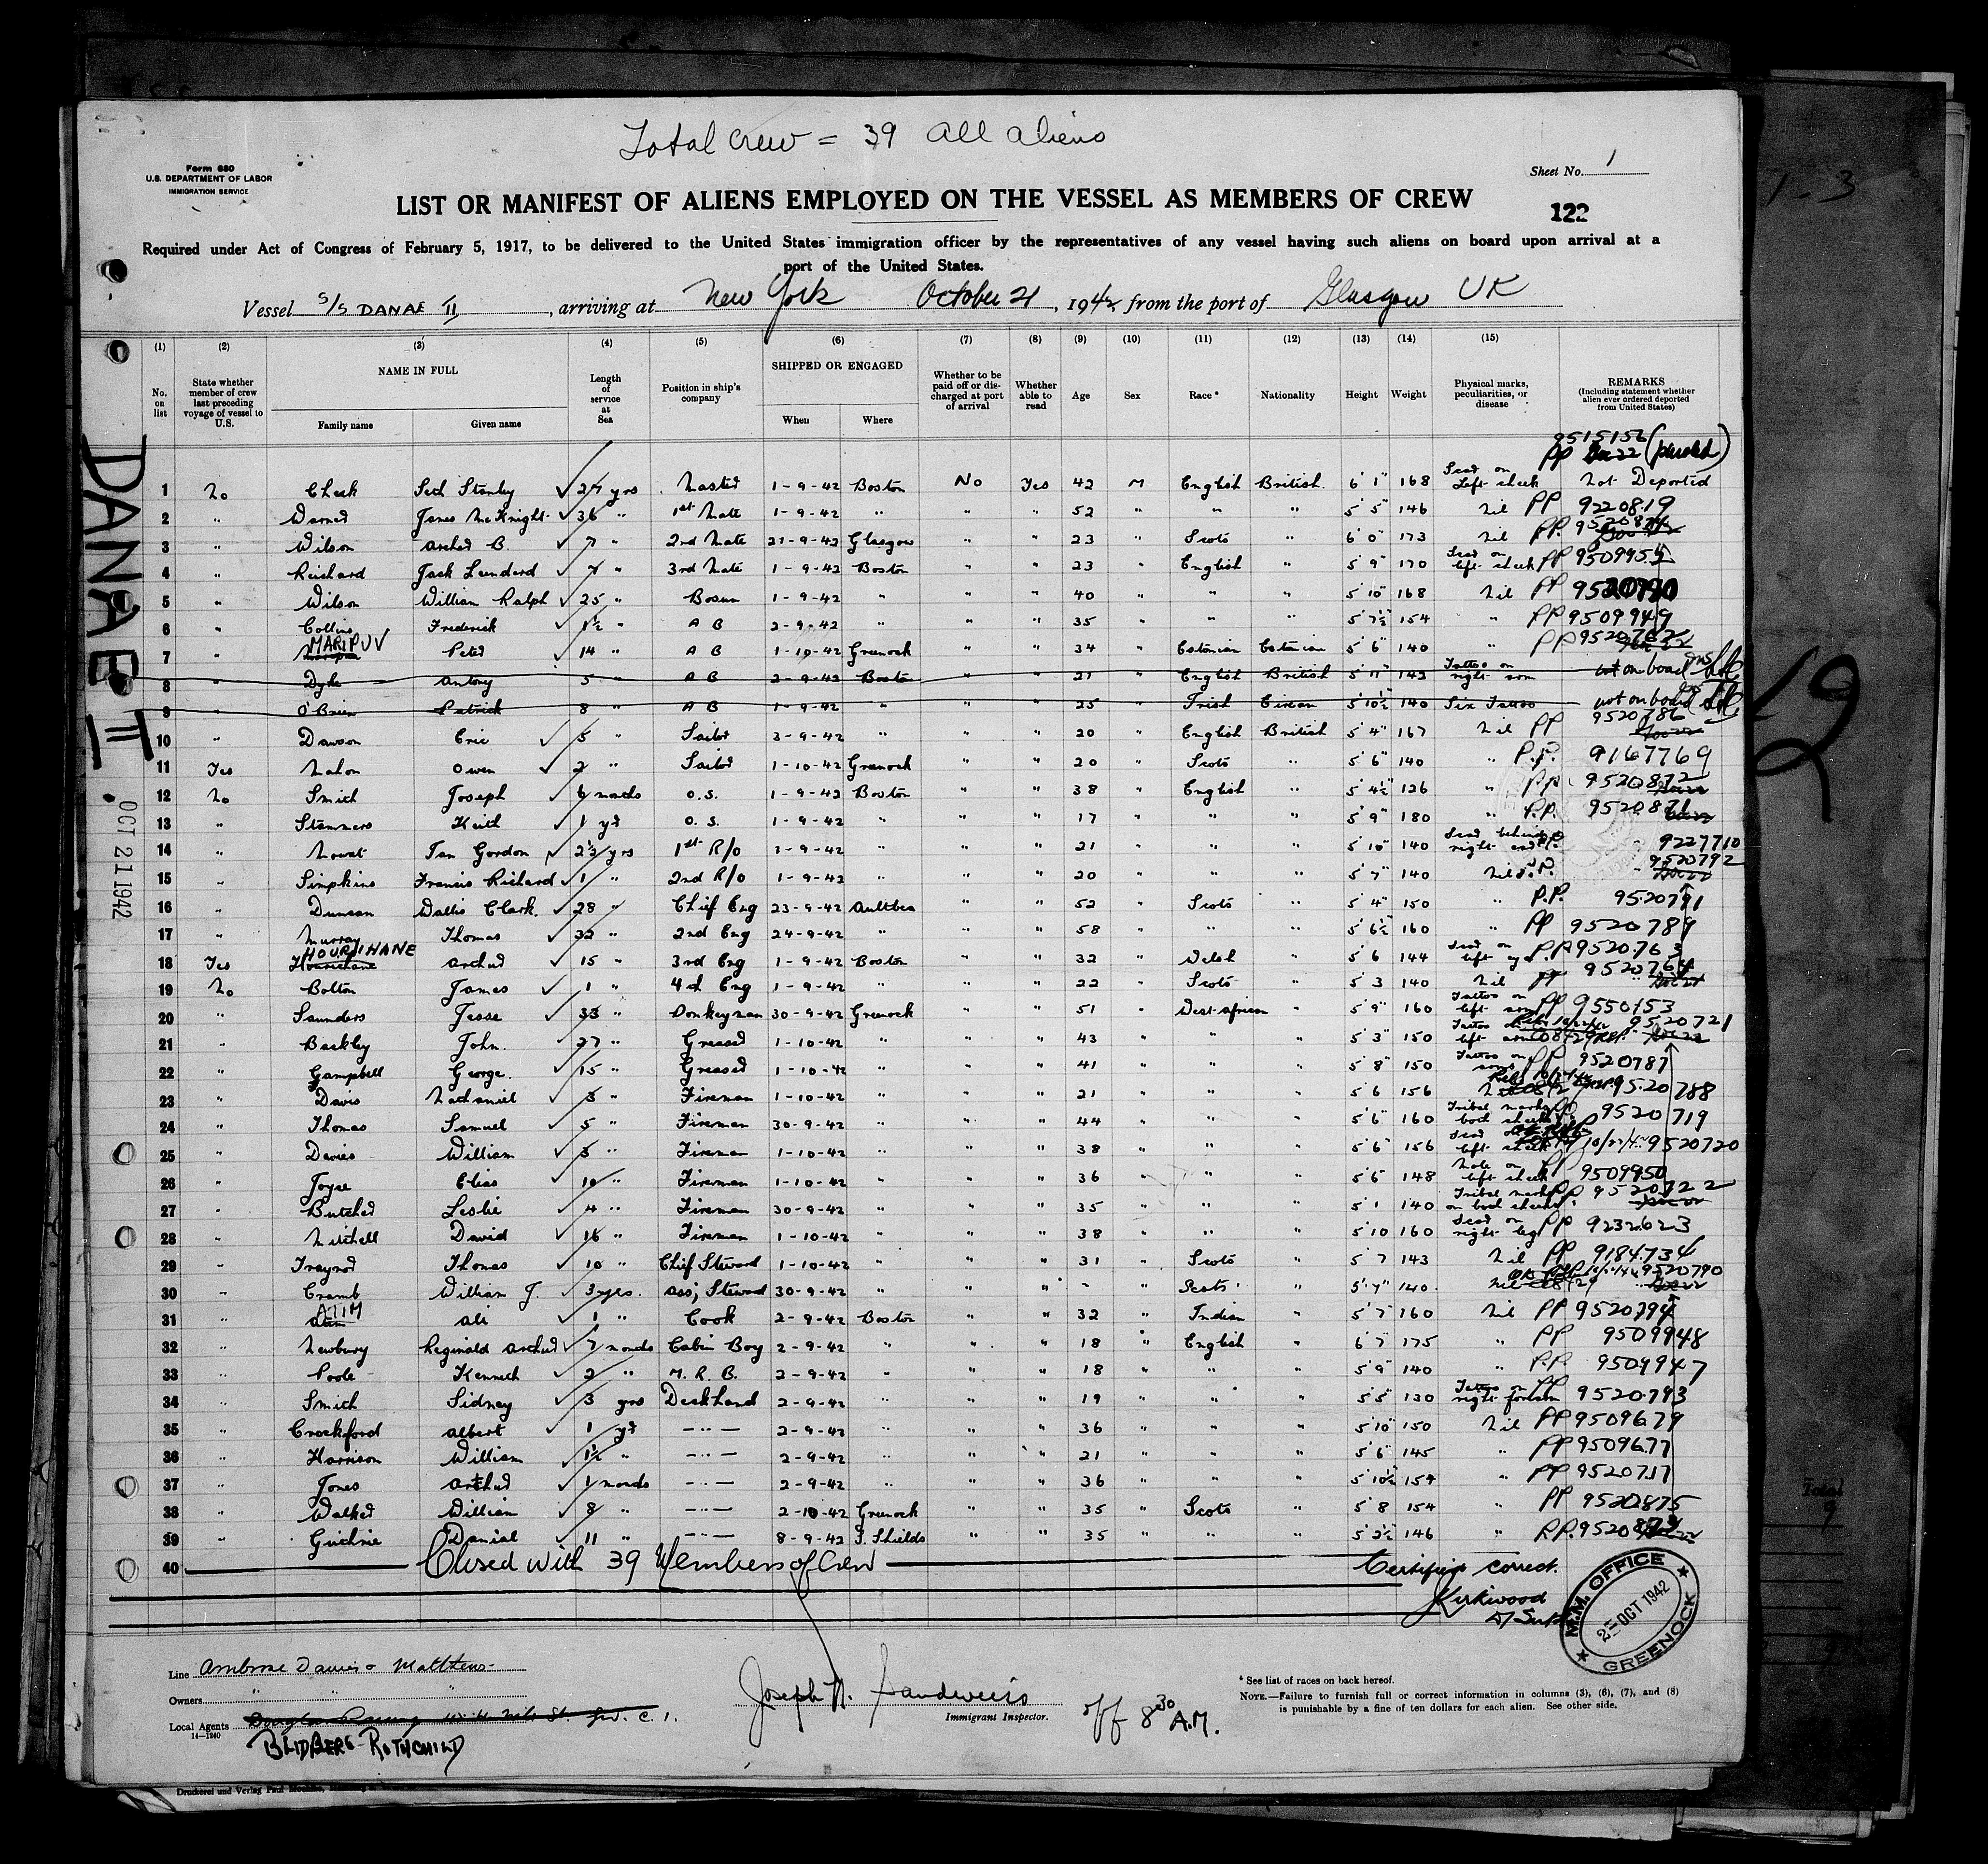 Total Crew = 39 All aliens
Form 680
U.S. DEPARTMENT OF LABOR
IMMIGRATION SERVICE
Sheet No. 1
LIST OR MANIFEST OF ALIENS EMPLOYED ON THE VESSEL AS MEMBERS OF CREW
122
Required under Act of Congress of February 5, 1917, to be delivered to the United States immigration officer by the representatives of any vessel having such aliens on board upon arrival at a
port of the United States.
Vessel S/S DANAE II, arriving at New York October 21, 1942 from the port of Glasgow UK
(1) (2) (3) (4) (5) (6) (7) (8) (9) (10) (11) (12) (13) (14) (15)
No. on list
State whether member of crew last preceding voyage of vessel to U.S.
NAME IN FULL
Family name Given name
Length of service at Sea
Position in ship's company
SHIPPED OR ENGAGED
When Where
Whether to be paid off or discharged at port of arrival
Whether able to read
Age Sex Race* Nationality Height Weight
Physical marks, peculiarities, or disease
REMARKS
(Including statement whether alien ever ordered deported from United States)
9515156
1 No Cheek Seth Stanley 27 yrs Master 1-9-42 Boston No Yes 42 M English British 6' 1" 168 Scar on Left cheek Not Deported
2 " James McKnight 36 " 1st Mate 1-9-42 " " " 52 " " " 5' 5" 146 Nil PP 9220819
3 " Wilson Archer B. 7 " 2nd Mate 21-9-42 Glasgow " " 23 " Scots " 6' 0" 173 Nil PP.
4 " Jack 3rd Mate 1-9-42 Boston " " 23 " English " 5' 9" 170 Scar on left cheek PP
5 " Wilson William Ralph 25 " Bosun 1-9-42 " " " 40 " " " 5' 10" 168 Nil PP
6 " Collins Frederick 1½ " A B 2-9-42 " " " 35 " " " 5' 7½ 154 " PP 9509949
7 " MARIPUV Peter 14 " A B 1-10-42 Greenock " " 34 " Estonian Estonian 5' 6" 140 " PP
8 " Dyke Antony 5 " A B 2-9-42 Boston " " 21 " English British 5' 11" 142 Tattoo on right arm not on board
9 " O'Brien Patrick 8 " A B 1-9-42 " " " 25 " Irish Eirean 5' 10½" 140 Six Tattoo not on board
10 " Dawson Eric 5 " Sailor 3-9-42 " " " 20 " English British 5' 4" 167 Nil PP 9520786
11 Yes Owen 2 " Sailor 1-10-42 Greenock " " 20 " Scots " 5' 6" 140 " P.P. 9167769
12 No Smith Joseph 6 months O.S. 1-9-42 Boston " " 38 " English " 5' 4½" 126 " PP 9520872
13 " Stammers Keith 1 yr O.S. 1-9-42 " " " 17 " " " 5' 9" 180 " P.P. 9520871
14 " Mowat Ian Gordon 2½ yrs 1st R/o 1-9-42 " " " 21 " " " 5' 10" 140 Scar behind right ear 9227710
15 " Simpkins Francis Richard 1 " 2nd R/o 1-9-42 " " " 20 " " " 5' 7" 140 Nil P.P. 9520792
16 " Duncan Wallis Clark 28 " Chief Eng 23-9-42 Aultbea " " 52 " Scots " 5' 4" 150 " P.P. 9520791
17 " Murray Thomas 32 " 2nd Eng 24-9-42 " " " 58 " " " 5' 6½" 160 " PP 9520789
18 Yes HOURIHANE Arthur 15 " 3rd Eng 1-9-42 Boston " " 32 " Welsh " 5' 6 144 Scar on left eye PP 9520763
19 No Bolton James 1 " 4th Eng 1-9-42 " " " 22 " Scots " 5' 3 140 Nil PP 9520764
20 " Saunders Jesse 33 " Donkeyman 30-9-42 Greenock " " 51 " West African " 5' 9" 160 Tattoo on left arm PP 9550153
21 " Beckley John 27 " Greaser 1-10-42 " " " 43 " " " 5' 3" 150 Tattoo on left arm 9520721
22 " Gampbell George 15 " Greaser 1-10-42 " " " 41 " " " 5' 8" 150 Tattoo on arms PP 9520787
23 " Davis Nathaniel 3 " Fireman 1-10-42 " " " 21 " " " 5' 6 156 9520788
24 " Thomas Samuel 5 " Fireman 30-9-42 " " " 44 " " " 5' 6" 160 Tribal marks both cheeks 9520719
25 " Davies William 5 " Fireman 1-10-42 " " " 38 " " " 5' 6" 156 Scar on left cheek 9520720
26 " Joyce Elias 10 " Fireman 1-10-42 " " " 36 " " " 5' 6" 148 Mole on left cheek PP 9509950
27 " Butcher Leslie 4 " Fireman 30-9-42 " " " 35 " " " 5' 1 140 Tribal marks on both cheeks 9520722
28 " Mitchell David 16 " Fireman 1-10-42 " " " 38 " " " 5' 10 160 Scar on right leg PP 9232623
29 " Traynor Thomas 10 " Chief Steward 1-10-42 " " " 31 " Scots " 5' 7 143 Nil PP 9184734
30 " Cramb William J. 3 yrs. Ass; Steward 30-9-42 " " " " " Scots " 5' 7" 140 Nil 9520790
31 " ATIM Ali 1 " Cook 2-9-42 Boston " " 32 " Indian " 5' 7" 160 Nil PP 9520794
32 " Newbury Reginald Arthur 7 months Cabin Boy 2-9-42 " " " 18 " English " 6' 7" 175 " PP 9509948
33 " Poole Kenneth 2 " M.R.B. 2-9-42 " " " 18 " " " 5' 9" 140 " P.P. 9509947
34 " Smith Sidney 3 yrs Deckhand 2-9-42 " " " 19 " " " 5' 5" 130 Tattoo on right forearm PP 9520793
35 " Crockford Albert 1 yr —"— 2-9-42 " " " 36 " " " 5' 10" 150 Nil PP 9509679
36 " Harrison William 1½ " —"— 2-9-42 " " " 21 " " " 5' 6" 145 " PP 9509677
37 " Jones Arthur 1 months —"— 2-9-42 " " " 36 " " " 5' 10½" 154 " PP 9520717
38 " Walker William 8 " —"— 2-10-42 Greenock " " 35 " Scots " 5' 8 154 " PP 9520875
39 " Guthrie Danial 11 " —"— 8-9-42 S. Shields " " 35 " " " 5' 2½" 146 " P.P.
40 Closed with 39 Members of Crew Certified correct.
Kirkwood
M.M. OFFICE
2-OCT 1942
GREENOCK
Line Ambrose Davies & Matthews
Owners " " "
Local Agents
14—1240
BLIDBERG ROTHCHILD
Joseph N. Sandweiss
Immigrant Inspector.
off 8 30 A.M.
* See list of races on back hereof.
NOTE.—Failure to furnish full or correct information in columns (3), (6), (7), and (8)
is punishable by a fine of ten dollars for each alien. See other side.
Druckerei und Verlag Paul
DANAE II
OCT 21 1942
1-3
19
Total
9